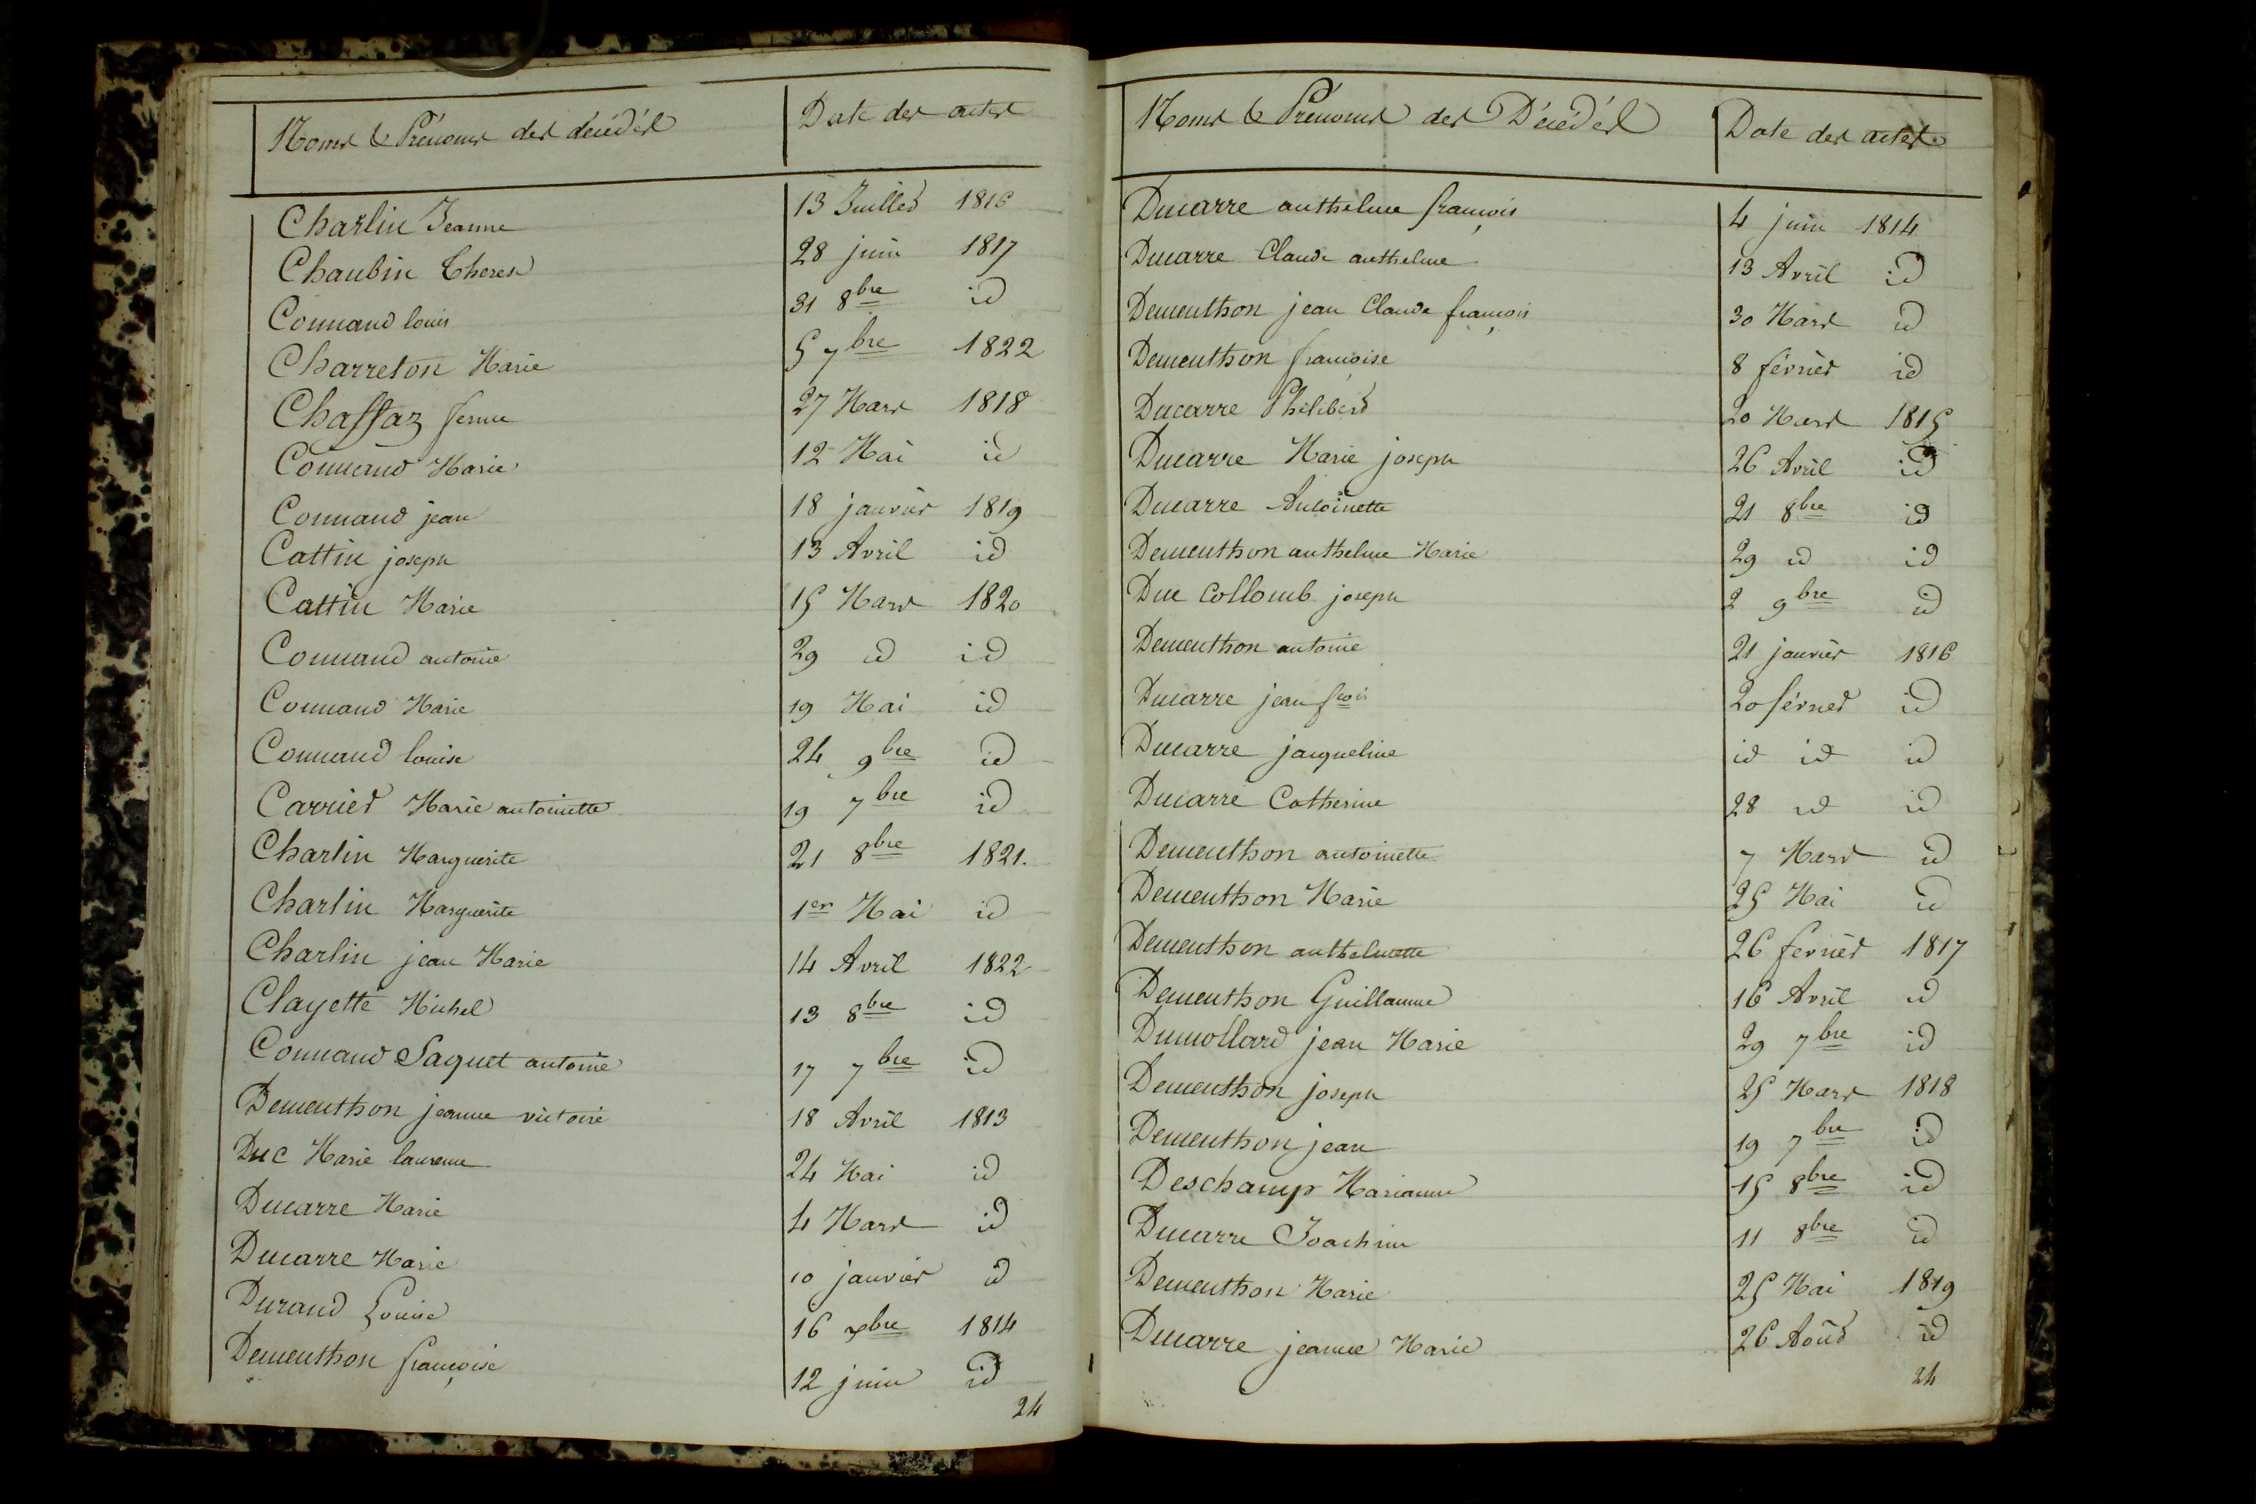 Noms & Prénoms des décédés Date des actes
Charlin Jeanne 13 Juillet 1816
Chaubin Therese 28 juin 1817
Connand louis 31 8bre id
Charreton Marie 5 7bre 1822
Chaffaz 27 Mars 1818
Connand Marie 12 Mai id
Connand jean 18 janvier 1819
Cattin joseph 13 Avril id
Cattin Marie 15 Mars 1820
Connand antoine 29 id id
Connand Marie 19 Mai id
Connand louise 24 9bre id
Carrier Marie antoinette 19 7bre id
Charlin Marguerite 21 8bre 1821.
Charlin Marguerite 1er Mai id
Charlin jean Marie 14 Avril 1822
Clayette Michel 13 8bre id
Connand Saquet antoine 17 7bre id
Dementhon jeanne victoire 18 Avril 1813
Duc Marie laurence 24 Mai id
Ducarre Marie 4 Mars id
Ducarre Marie 10 janvier id
Durand Louise 16 xbre 1814
Dementhon françoise 12 juin id
24
Noms & Prénoms des Décédés Date des actes
Ducarre anthelme françois 4 juin 1814
Ducarre Claude anthelme 13 Avril id
Dementhon jean Claude françois 30 Mars id
Dementhon françoise 8 février id
Ducarre Philibert 20 Mars 1815
Ducarre Marie joseph 26 Avril id
Ducarre Antoinette 21 8bre id
Dementhon anthelme Marie 29 id id
Duc Collomb joseph 2 9bre id
Dementhon antoine 21 janvier 1816
Ducarre jean fcois 20 février id
Ducarre jacqueline id id id
Ducarre Catherine 28 id id
Dementhon antoinette 7 Mars id
Dementhon Marie 25 Mai id
Dementhon anthelmette 26 fevrier 1817
Dementhon Guillaume 16 Avril id
Dumollard jean Marie 29 7bre id
Dementhon joseph 25 Mars 1818
Dementhon jean 19 7bre id
Deschamps Marianne 15 8bre id
Ducarre Joachim 11 8bre id
Dementhon Marie 25 Mai 1819
Ducarre jeanne Marie 26 Août id
24